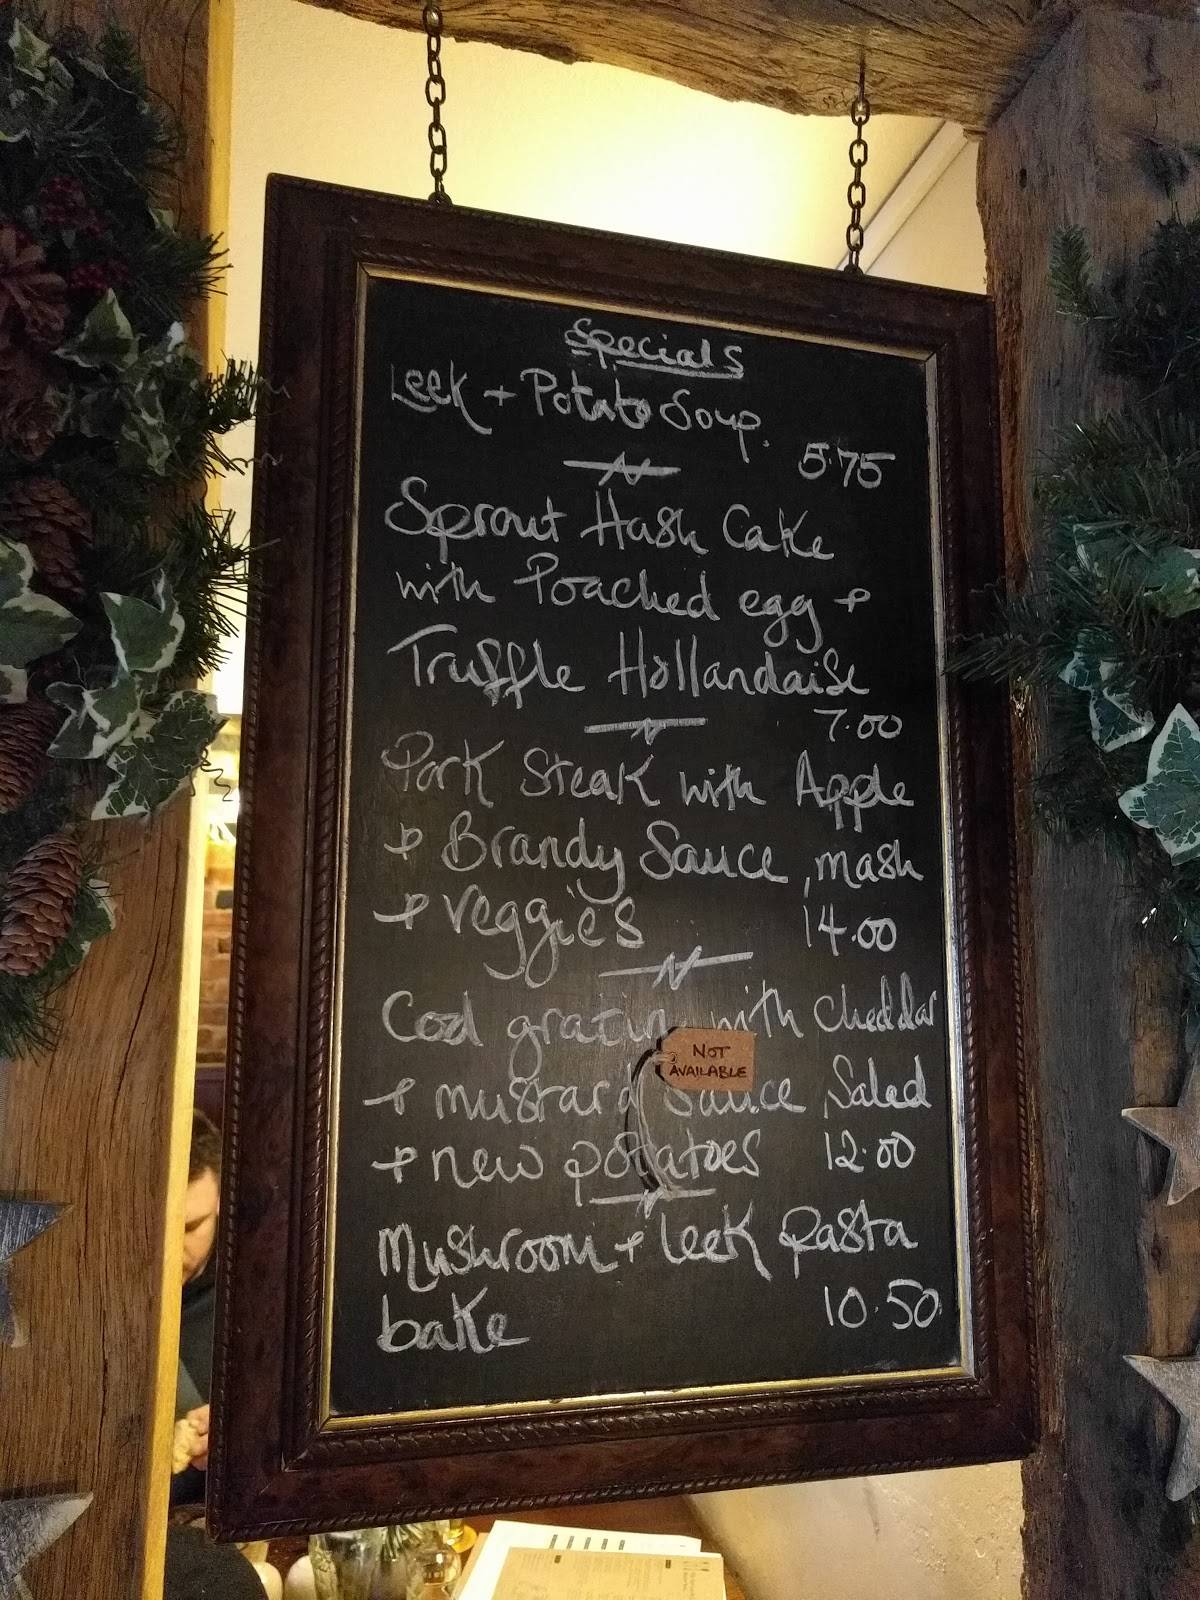 Specials
Leek + Potato Soup.
5.75
Sprout Hash Cake
with Poached egg +
Truffle Hollandaise
7.00
Pork Steak with Apple
+ Brandy Sauce, mash
+ veggies 14.00
Cod gratin with cheddar
NOT
AVAILABLE
+ mustard Sauce, Salad
+ new potatoes 12.00
Mushroom + leek pasta
bake 10.50